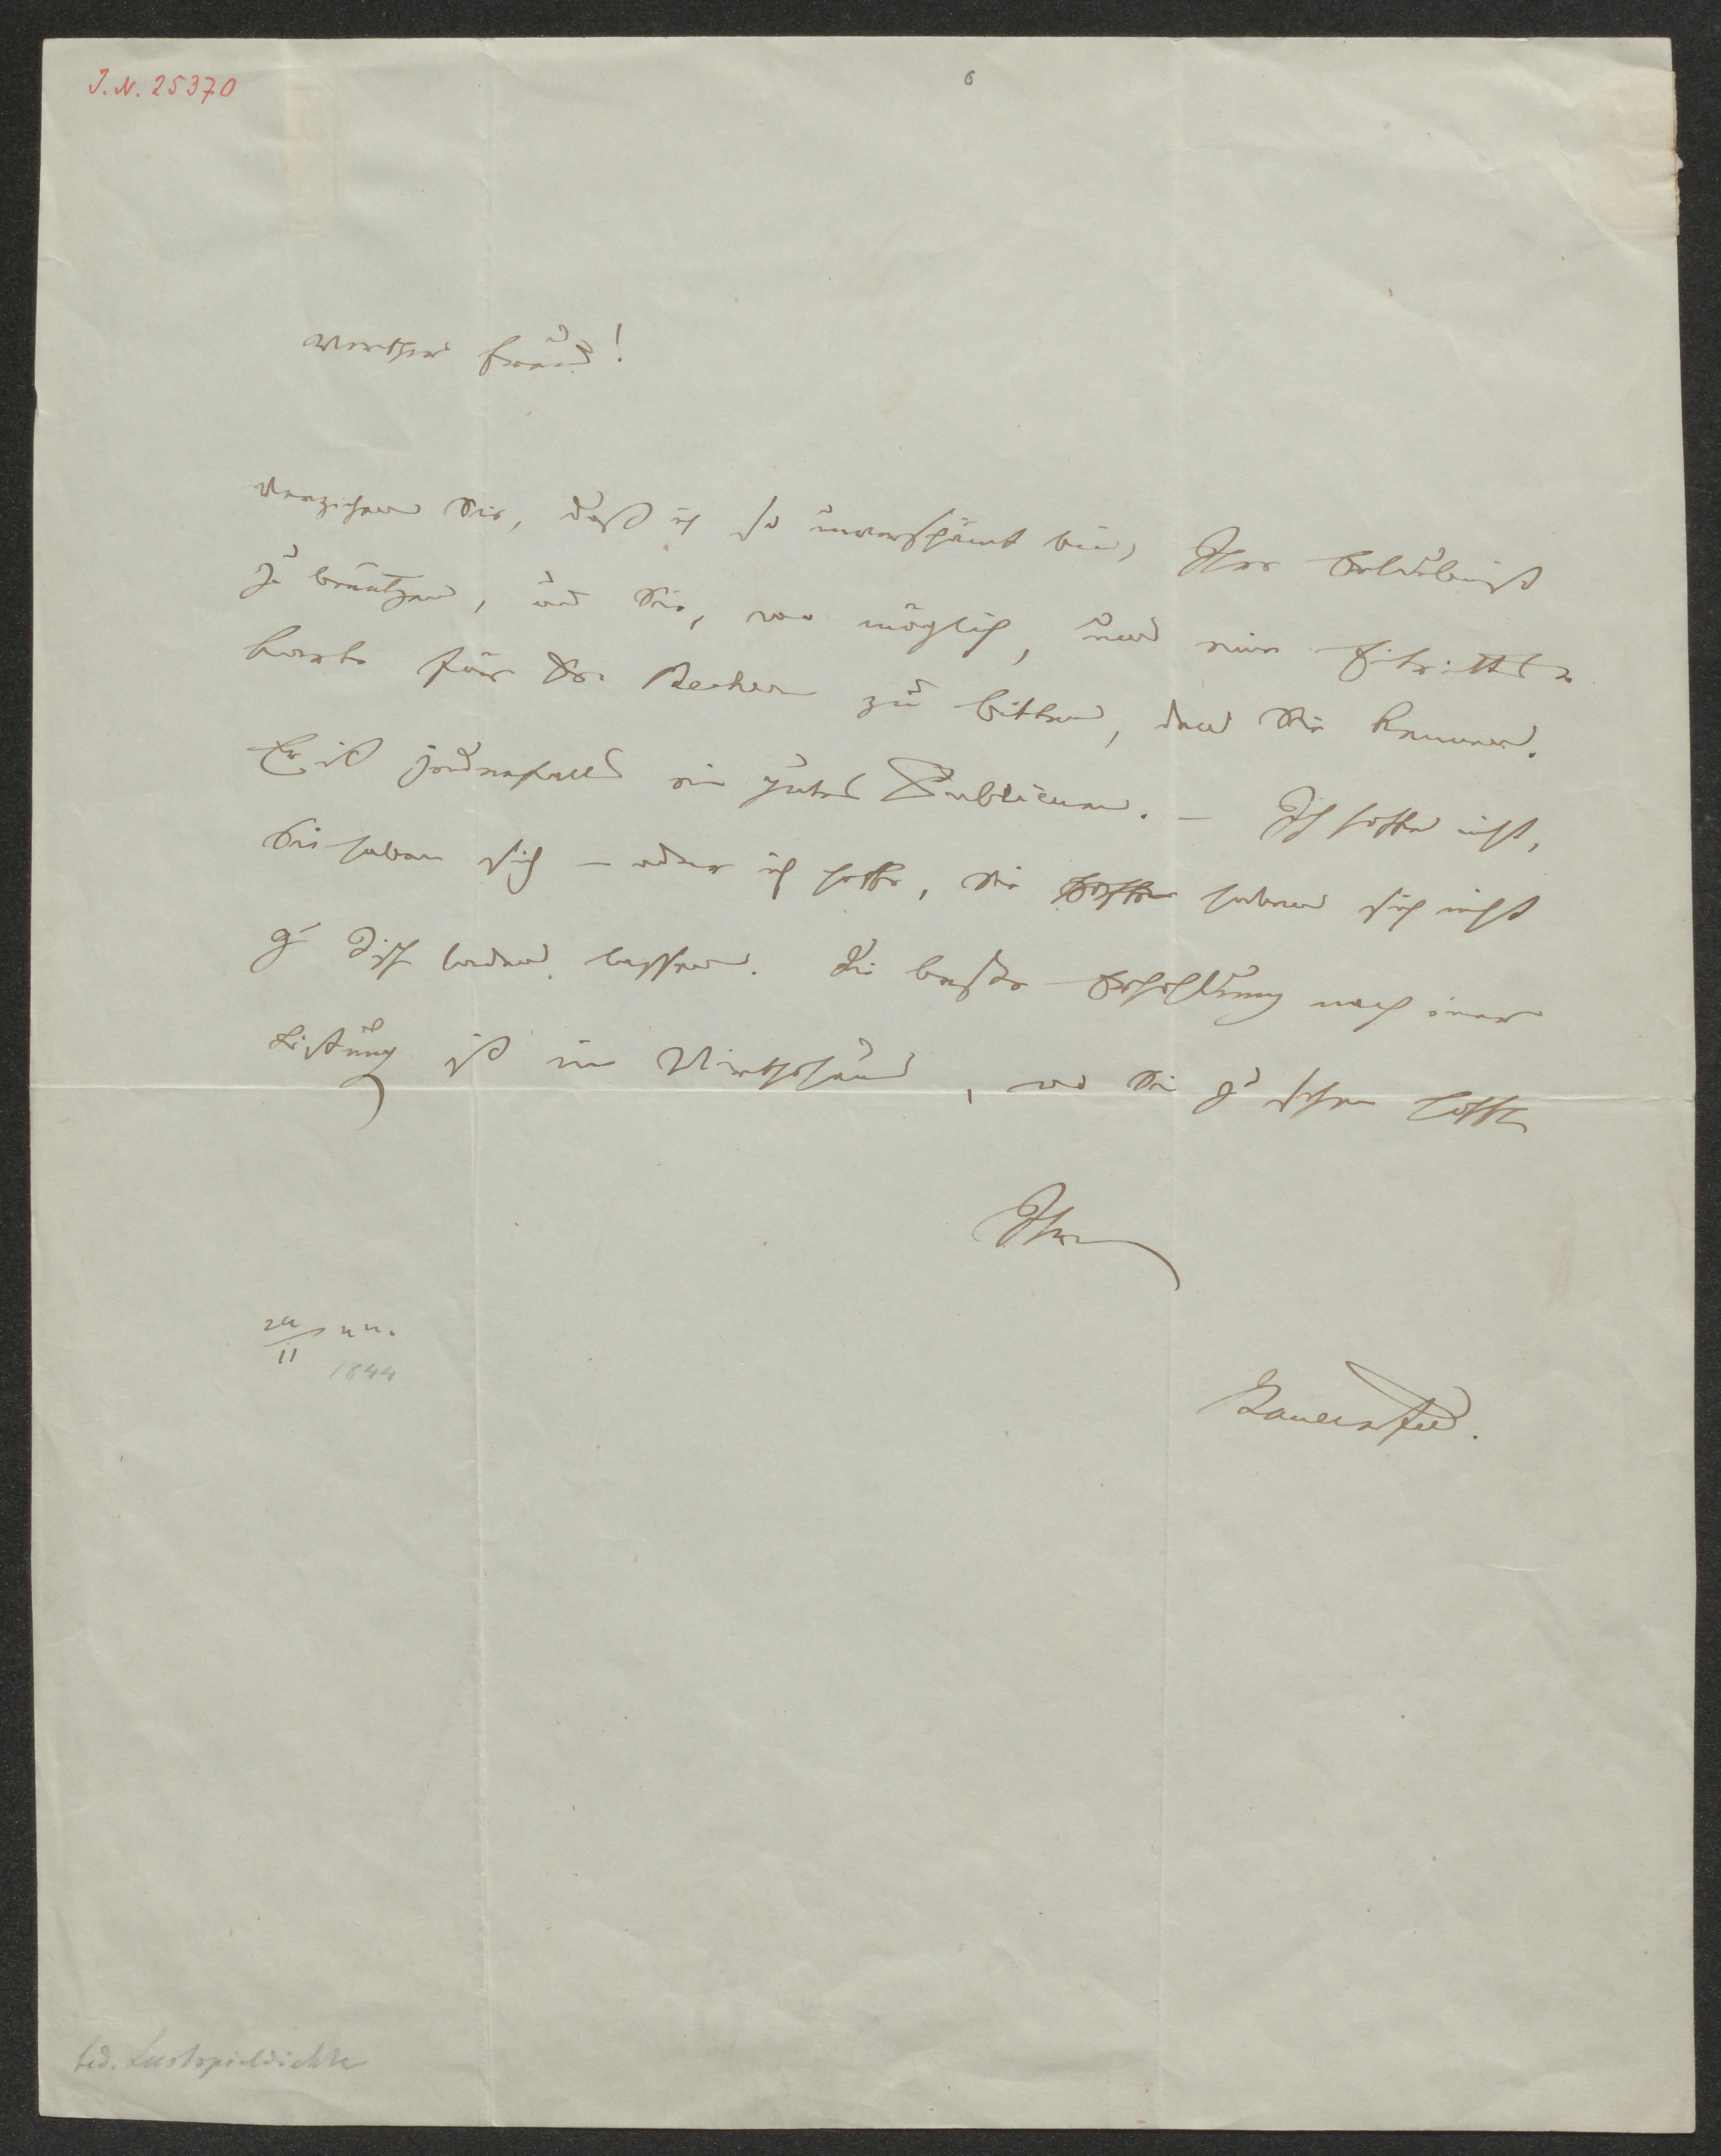 J. N. 25370
6
Werther Freund!
Verzeihen Sie, daß ich so unverschämt bin, Ihre Erlaubniß
zu benützen, und Sie, wo möglich, um eine Eintritts
karte für Dr. Becher zu bitten, den Sie kennen.
Er ist jedenfalls ein gutes Publicum. – Ich hoffe nicht,
Sie haben sich – oder ich hoffe, Sie haben sich nicht
zu Tisch laden lassen. Die beste Erhohlung nach einer
Leistung ist im Wirthshaus, wo Sie zu sehen hofft
Ihr
24/11 44.
1844
Bauernfeld.
bed. Lustspieldichter